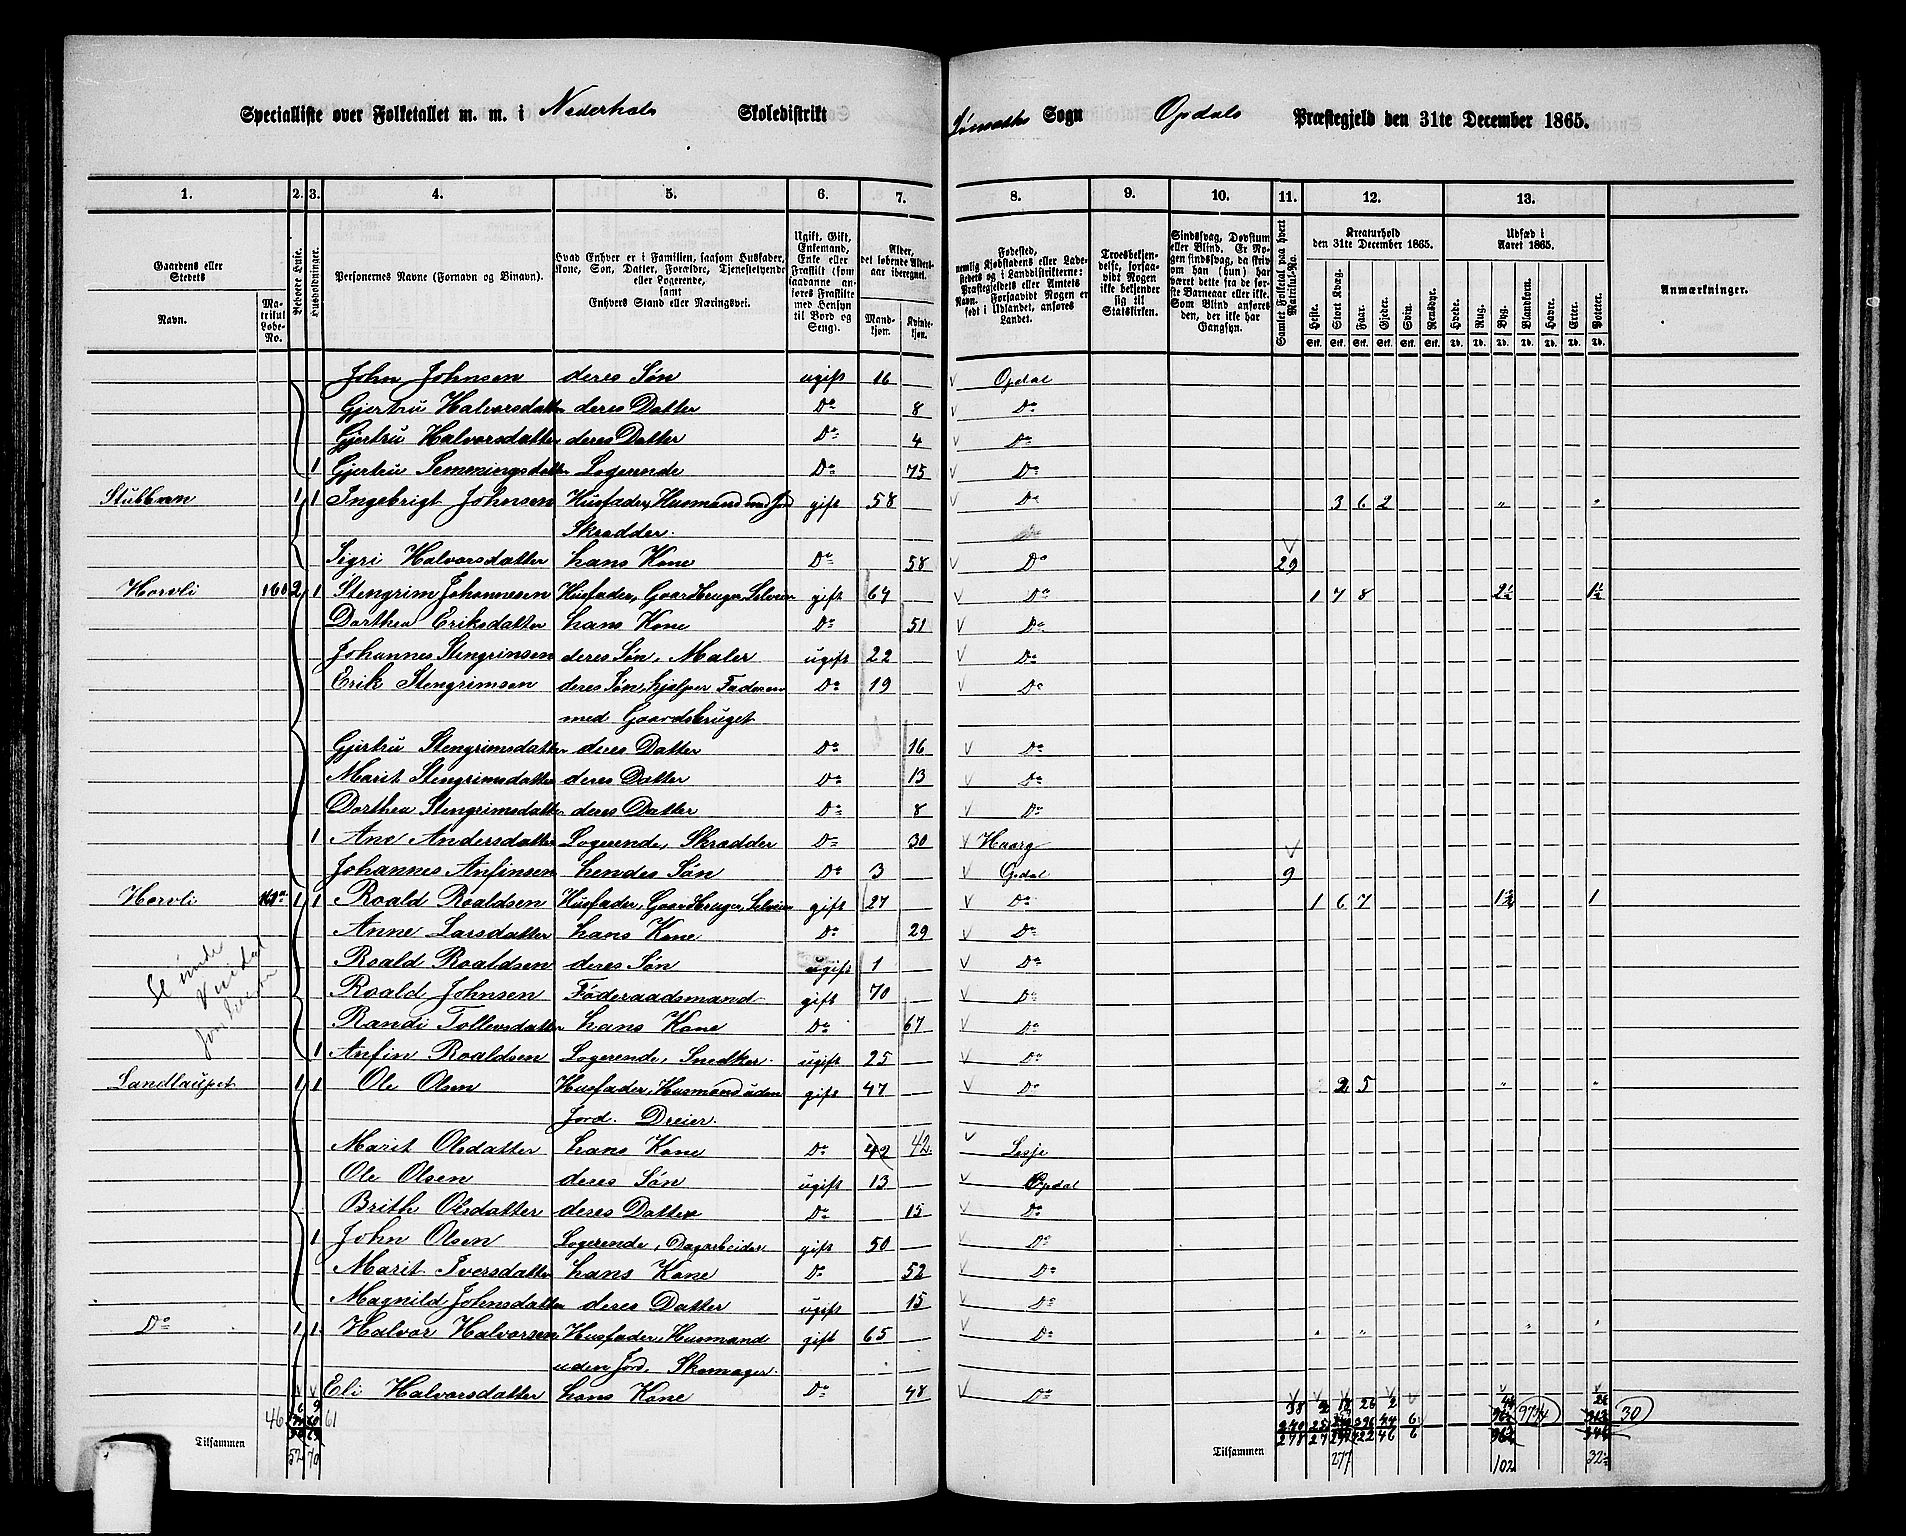 Specialliste over Folketallet m. m. i Nederhals Skoledistrikt Sogn Opdals Præstegjeld den 31te December 1865.
1. 2. 3. 4. 5. 6. 7. 8. 9. 10. 11. 12. 13.
Gaardens eller Stedets
Navn.
Matrikul Løbe-No.
Beboede Huse.
Husholdninger.
Personernes Navne (Fornavn og Binavn).
Hvad Enhver er i Familien, saasom Husfader, Kone, Søn, Datter, Forældre, Tjenestetyende eller Logerende, samt Enhvers Stand eller Næringsvei.
Ugift, Gift, Enkemand, Enke eller Fraskilt (som saadanne anføres Fraskilte med Hensyn til Bord og Seng).
Alder, det løbende Aldersaar iberegnet.
Mandkjøn. Kvindekjøn.
Fødested, nemlig Kjøbstadens eller Ladestedets og i Landdistrikterne: Præstegjeldets eller Amtets Navn. Forsaavidt Nogen er født i Udlandet, anføres Landet.
Troesbekjendelse, forsaavidt Nogen ikke bekjender sig til Statskirken.
Sindssvag, Døvstum eller Blind. Er Nogen sindssvag, da skrives om han (hun) har været dette fra de første Barneaar eller ikke. Som Blind anføres den, der ikke har Gangsyn.
Samlet Folketal paa hvert Matrikul-No.
Kreaturhold den 31te December 1865.
Heste. Stort Kvæg. Faar. Gjeder. Svin. Rensdyr.
Udsæd i Aaret 1865.
Hvede. Rug. Byg. Blandkorn. Havre. Erter. Poteter.
Anmærkninger.
John Johnsen deres Søn ugift 16 Opdal
Gjertru Halvorsdatter deres Datter Do 8 Do
Gjertru Halvorsdatter deres Datter Do 4 Do
1 Gjertru Semmingsdatter Logerende Do 75 Do
Stubban 1 1 Ingebrigt Johnsen Husfader, Husmand med Jord gift 58 Do 3 6 2 " "
Skrædder.
Sigri Halvorsdatter hans Kone Do 58 Do 29
Horvli 160 2 1 Stengrim Johannesen Husfader, Gaardbruger, Selveier gift 64 Do 1 7 8 2½ 1½
Dorthea Eriksdatter hans Kone Do 51 Do
Johannes Stengrimsen deres Søn, Maler ugift 22 Do
Erik Stengrimsen deres Søn, hjelper Faderen Do 19 Do
med Gaardsbruget
Gjertru Stengrimsdatter deres Datter Do 16 Do
Marit Stengrimsdatter deres Datter Do 13 Do
Dorthea Stengrimsdatter deres Datter Do 8 Do
1 Ane Andersdatter Logerende, Skrædder Do 30 Haarg
Johannes Anfinsen hendes Søn Do 3 Opdal 9
Horvli 1 1 Roald Roaldsen Husfader, Gaardbruger, Selveier gift 27 Do 1 6 7 1
Anne Larsdatter hans Kone Do 29 Do
Roald Roaldsen deres Søn ugift 1 Do
Roald Johnsen Føderaadsmand gift 70 Do
Randi Tollevsdatter hans Kone Do 67 Do
1 Anfin Roaldsen Logerende, Snedker ugift 25 Do
Sandlaupet 1 1 Ole Olsen Husfader, Husmand uden gift 47 Do 2 5 " "
Jord. Dreier.
Marit Olsdatter hans Kone Do 42 42 Lesje
Ole Olsen deres Søn ugift 13 Opdal
Brith Olsdatter deres Datter Do 15 Do
1 John Olsen Logerende, Dagarbeider gift 50 Do
Marit Iversdatter hans Kone Do 52 Do
Magnild Johnsdatter deres Datter ugift 15 Do
Do 1 1 Halvor Halvorsen Husfader, Husmand gift 65 Do " " " "
uden Jord, Skomager.
Eli Halvorsdatter hans Kone Do 48 Do
Tilsammen 46 61 52 70
Tilsammen 38 2 18 26 2
278 27 46 6
277 102 30